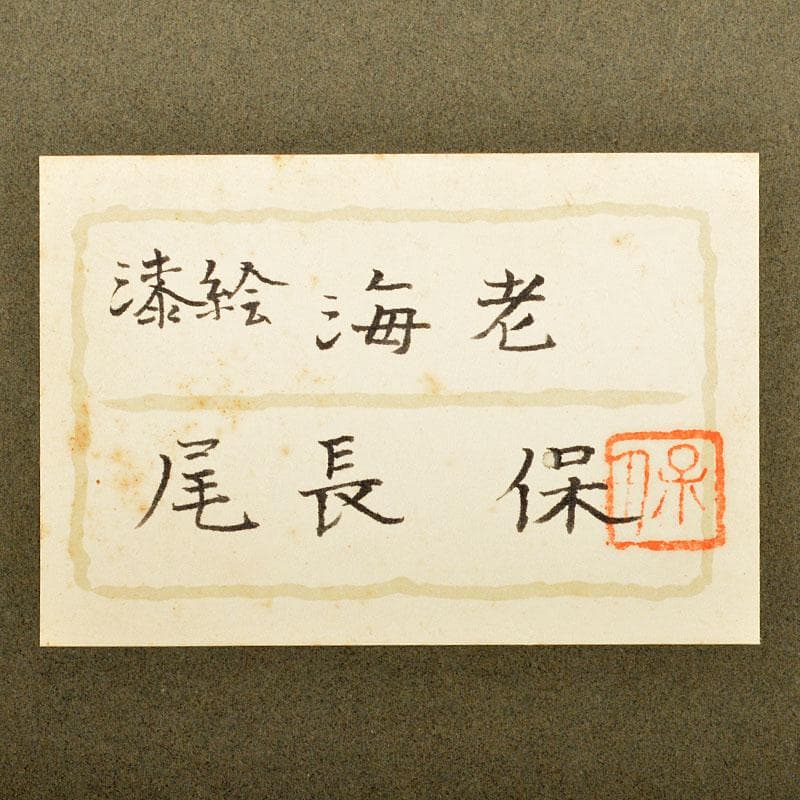 漆絵 海老
尾長 保
保